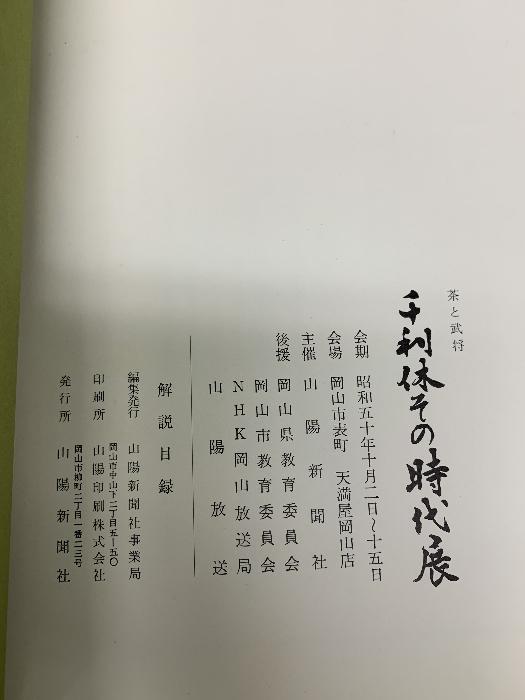 茶と武将
千利休その時代展
会期　昭和五十年十月二日～十五日
会場　岡山市表町　天満屋岡山店
主催　山陽新聞社
後援　岡山県教育委員会
岡山市教育委員会
NHK岡山放送局
山陽放送
解説目録
編集発行　山陽新聞社事業局
岡山市中山下二丁目五ー五〇
印刷所　山陽印刷株式会社
岡山市柳町二丁目一番二三号
発行所　山陽新聞社